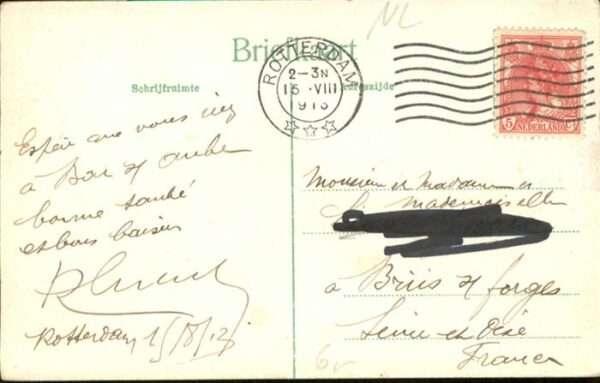 NL
Briefkaart
Schrijfruimte
ROTTERDAM
2-3N
15 .VIII
1913
5
NEDERLAND
Espère que vous
à Bar s/ aube
bonne santé
et bons baisers
Rotterdam 15/8/13
Monsieur et Madame et
Mademoiselle
à Briis s/ forges
Seine et Oise
France